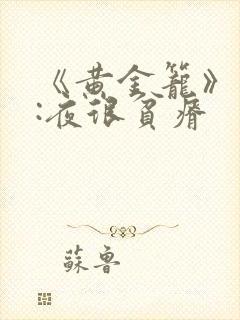 《黄金籠》
:夜很貧瘠
蘇魯